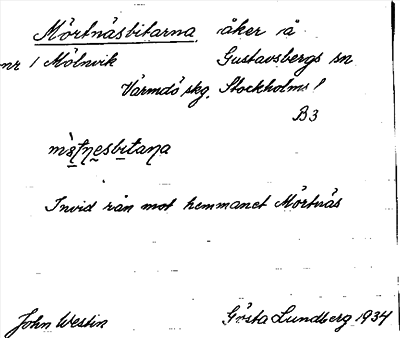 Mörtnäsbitarna åker å
nr 1 Mölnvik Gustavsbergs sn
Värmdö skg. Stockholms l
B3
Invid rån mot hemmanet Mörtnäs
John Westin Gösta Lundberg 1934